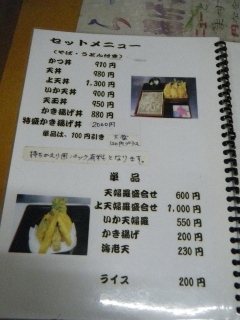 セットメニュー
(そば・うどん付き)
かつ丼 970円
天丼 980円
上天丼 1,300円
いか天丼 900円
天玉丼 950円
かき揚げ丼 880円
特盛かき揚げ丼
単品は、100円引き
単品
天婦羅盛合せ 600円
上天婦羅盛合せ 1,000円
いか天婦羅 550円
かき揚げ 200円
海老天 230円
ライス 200円